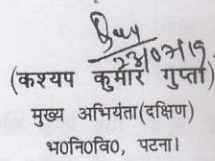 24/07/19
(कश्यप कुमार गुप्ता)
मुख्य अभियंता(दक्षिण)
भ०नि०वि०, पटना।